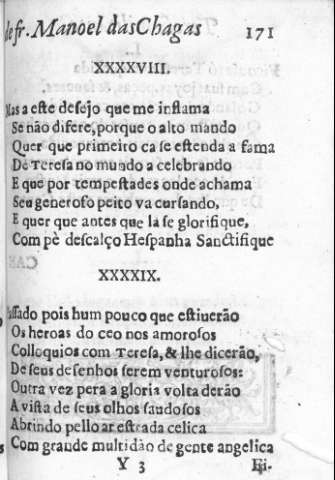 de fr. Manoel das Chagas 171
XXXXVIII.
Mas a este desejo que me inflama
Se não difere, porque o alto mando
Quer que primeiro ca se estenda a fama
De Teresa no mundo a celebrando
E que por tempestades onde achama
Seu generoso peito va cursando,
E quer que antes que la se glorifique,
Com pè descalço Hespanha Sanctifique
XXXXIX.
Passado pois hum pouco que estiuerão
Os heroas do ceo nos amorosos
Colloquios com Teresa, & lhe dicerão,
De seus desenhos serem venturosos:
Outra vez pera a gloria volta derão
A vista de seus olhos saudosos
Abrindo pello ar estrada celica
Com grande multidão de gente angelica
Y 3